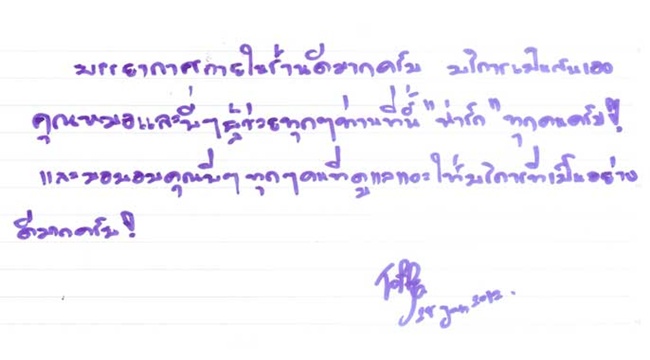 บรรยากาศภายในร้านดีมากครับ บริการเป็นกันเอง
คุณหมอและพี่ๆผู้ช่วยทุกๆท่านที่นี่ "น่ารัก" ทุกคนครับ!
และขอขอบคุณพี่ๆ ทุกๆคนที่ดูแลและให้บริการที่เป็นอย่าง
ดีมากครับ!
Toffa
28 Jan 2012.